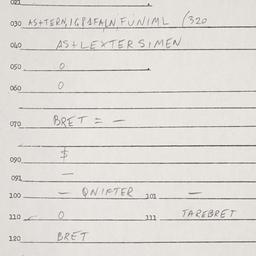 021
030 AS+TERN,IG81FALN, FUNIML (320
040 AS+LEXTER SIMEN
050 0
060 0
070 BRET = -
$
090 -
091
100 - QNIFTER 101 -
110 0 111 TAREBRET
120 BRET